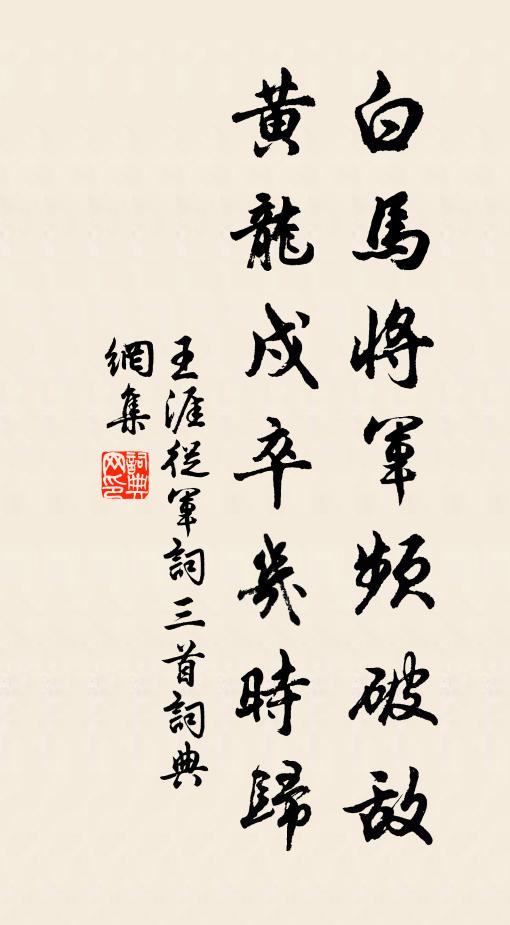 白馬將軍頻破敌
黃龍戍卒幾時歸
王涯從軍詞三首詞典
網集
詞典
网印